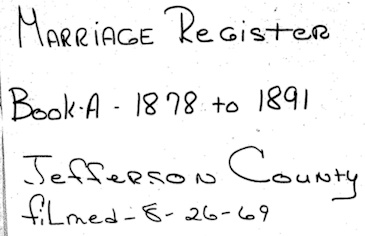 Marriage Register
Book-A - 1878 to 1891
Jefferson County
filmed - 8-26-69